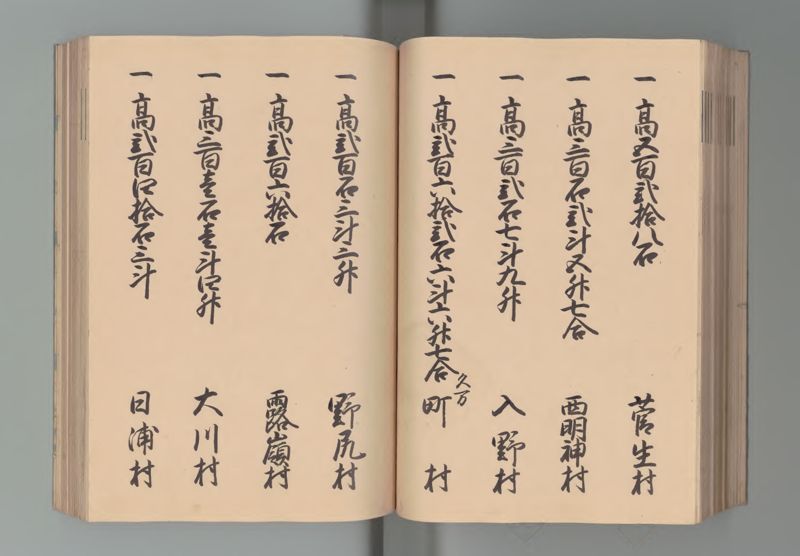 一 高五百弐拾八石 菅生村
一 高三百石弐斗五升七合 西明神村
一 高三百弐石七斗九升 入野村
一 高弐百六拾弐石六斗六升七合 久万町村
一 高弐百石三斗二升 野尻村
一 高弐百六拾石 露嶺村
一 高三百壱石壱斗四升 大川村
一 高弐百四拾石三斗 日浦村